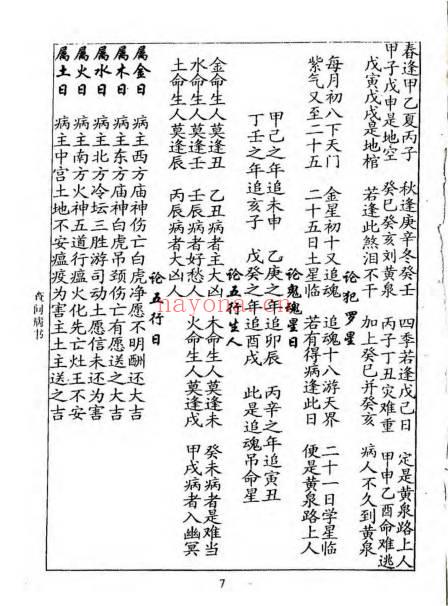 春逢甲乙夏丙子 秋逢庚辛冬癸壬 四季若逢戊己日 定是黄泉路上人
甲子戊申是地空 癸巳癸亥刘黄泉 丙子丁丑灾难重 甲申乙酉命难逃
戊寅戊戌是地棺 若逢此煞泪不干 加上癸巳并癸亥 病人不久到黄泉
论犯罗星
每月初八下天门 金星初十又追魂 追魂十八游天界 二十一日学星临
紫气又至二十五 二十五日土星临 若有得病逢此日 便是黄泉路上人
论鬼魂星日
甲己之年追未申 乙庚之年追卯辰 丙辛之年追寅丑
丁壬之年追亥子 戊癸之年追酉戌 此是追魂吊命星
论五行生人
金命生人莫逢丑 乙丑病者主大凶 木命生人莫逢未 癸未病者是难当
水命生人莫逢壬 壬辰病者好愁人 火命生人莫逢戌 甲戌病者入幽冥
土命生人莫逢辰 丙辰病者大凶人
论五行日
属金日 病主西方庙神伤亡白虎净愿不明酬还大吉
属木日 病主东方庙神白虎吊颈伤亡有愿送之大吉
属水日 病主北方冷坛三胜游司动土愿信未还为害
属火日 病主南方火神五道行瘟火化先亡灶王不安
属土日 病主中宫土地不安瘟疫为害主土主送之吉
查问病书
7
nayona.cn